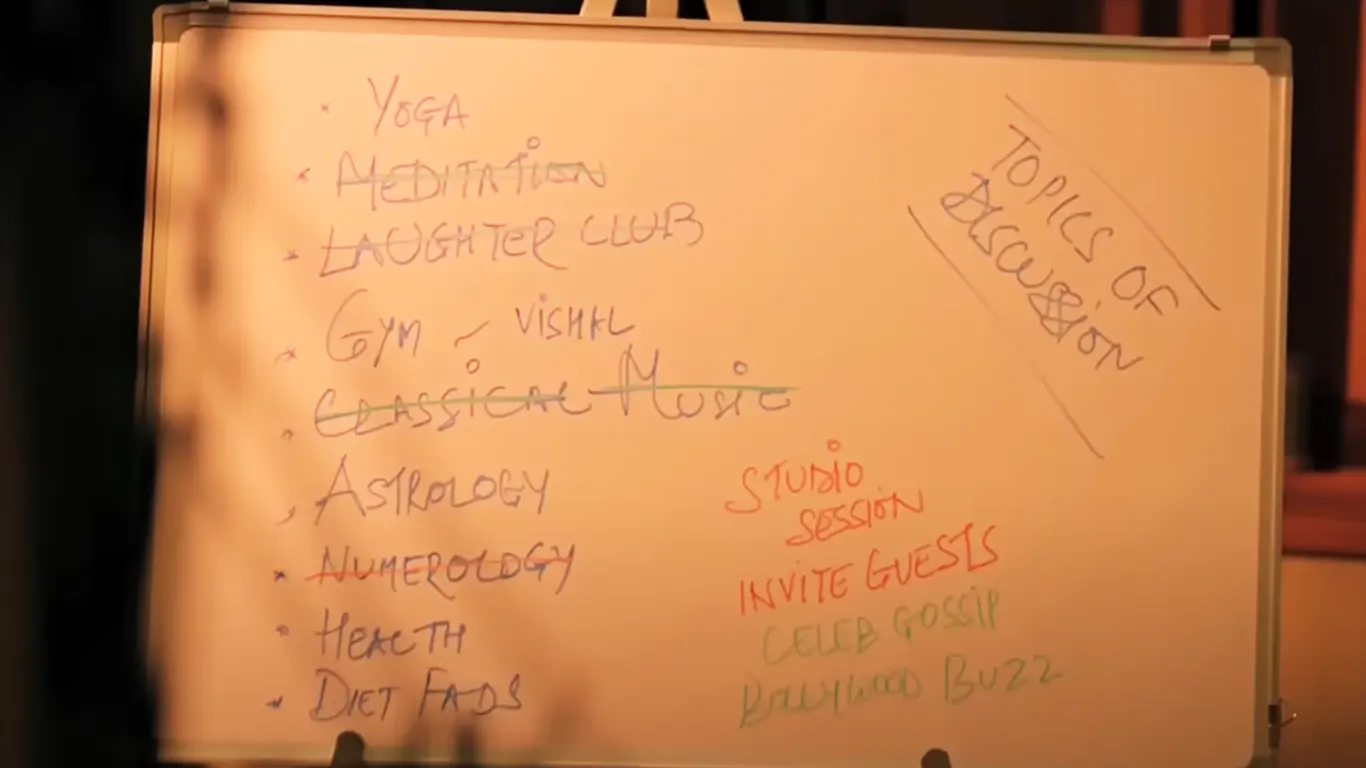 YOGA
MEDITATION
LAUGHTER CLUB
GYM - VISHAL
CLASSICAL MUSIC
ASTROLOGY
NUMEROLOGY
HEALTH
DIET FADS
TOPICS OF
DISCUSSION
STUDIO
SESSION
INVITE GUESTS
CELEB GOSSIP
BOLLYWOOD BUZZ